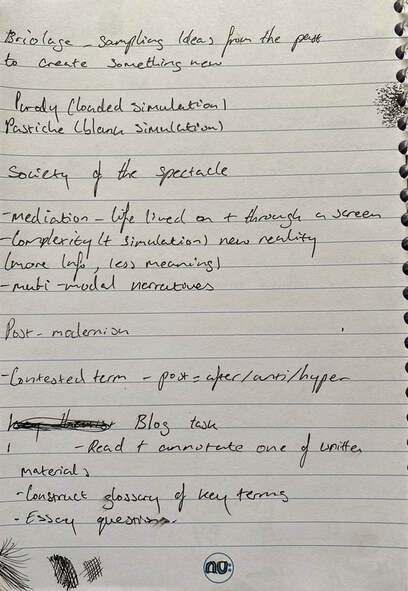 Briolage - Sampling Ideas from the past
to create something new
Parody (loaded simulation)
Pastiche (blank simulation)
Society of the spectacle
-mediation - life lived on + through a screen
-Complexity (+ simulation) new reality
(more info, less meaning)
-muti-modal narratives
Post-modernism
-Contested term - post = after/anti/hyper
Blog task
- Read + annotate one of written
materials
-Construct glossary of key terms
-Essay questions.
nu: